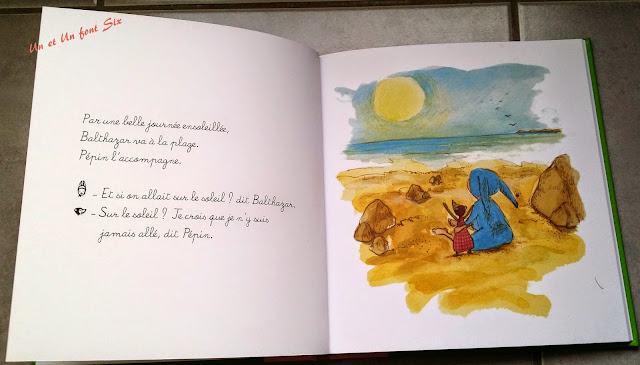 Un et Un font Six
Par une belle journée ensoleillée,
Balthazar va à la plage.
Pépin l'accompagne.
– Et si on allait sur le soleil ? dit Balthazar.
– Sur le soleil ? Je crois que je n'y suis
jamais allé, dit Pépin.